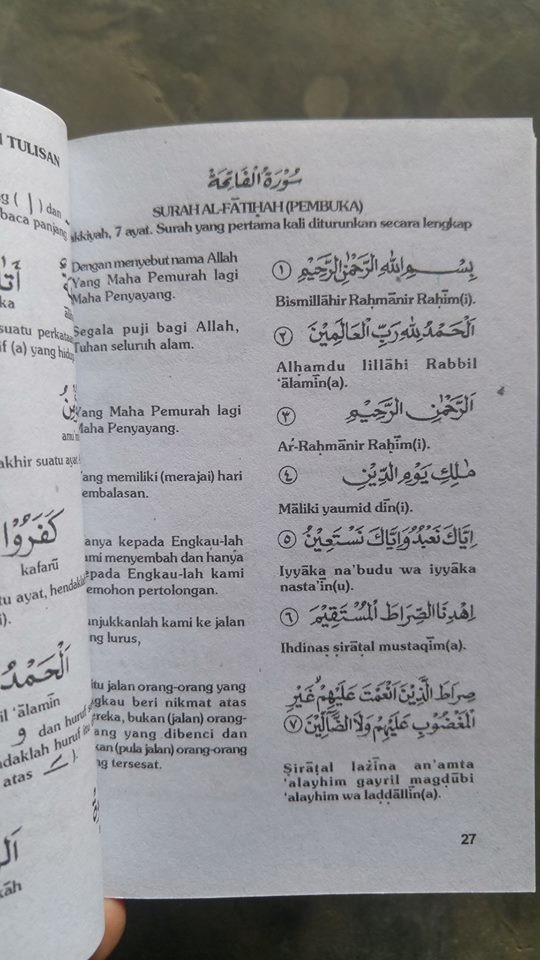 TULISAN
baca panjang
suatu perkata
kafarū
سُوْرَةُ الْفَاتِحَةِ
SURAH AL-FĀTIḤAH (PEMBUKA)
akkiyah, 7 ayat. Surah yang pertama kali diturunkan secara lengkap
Dengan menyebut nama Allah
Yang Maha Pemurah lagi
Maha Penyayang.
بِسْمِ اللهِ الرَّحْمٰنِ الرَّحِيْمِ ١
Bismillāhir Raḥmānir Raḥīm(i).
Segala puji bagi Allah,
Tuhan seluruh alam.
اَلْحَمْدُ لِلّٰهِ رَبِّ الْعَالَمِيْنَ ٢
Alḥamdu lillāhi Rabbil
‘ālamīn(a).
Yang Maha Pemurah lagi
Maha Penyayang.
اَلرَّحْمٰنِ الرَّحِيْمِ ٣
Ar-Raḥmānir Raḥīm(i).
Yang memiliki (merajai) hari
embalasan.
مٰلِكِ يَوْمِ الدِّيْنِ ٤
Māliki yaumid dīn(i).
anya kepada Engkau-lah
ami menyembah dan hanya
epada Engkau-lah kami
emohon pertolongan.
اِيَّاكَ نَعْبُدُ وَاِيَّاكَ نَسْتَعِيْنُ ٥
Iyyāka na’budu wa iyyāka
nasta’īn(u).
unjukkanlah kami ke jalan
ng lurus,
اِهْدِنَا الصِّرَاطَ الْمُسْتَقِيْمَ ٦
Ihdinaṣ ṣirāṭal mustaqīm(a).
itu jalan orang-orang yang
ngkau beri nikmat atas
ereka, bukan (jalan) orang-
rang yang dibenci dan
ukan (pula jalan) orang-orang
ng tersesat.
صِرَاطَ الَّذِيْنَ اَنْعَمْتَ عَلَيْهِمْ غَيْرِ
الْمَغْضُوْبِ عَلَيْهِمْ وَلَا الضَّآلِّيْنَ ٧
Ṣirāṭal lażīna an’amta
‘alayhim gayril magḍūbi
‘alayhim wa laḍḍallīn(a).
27